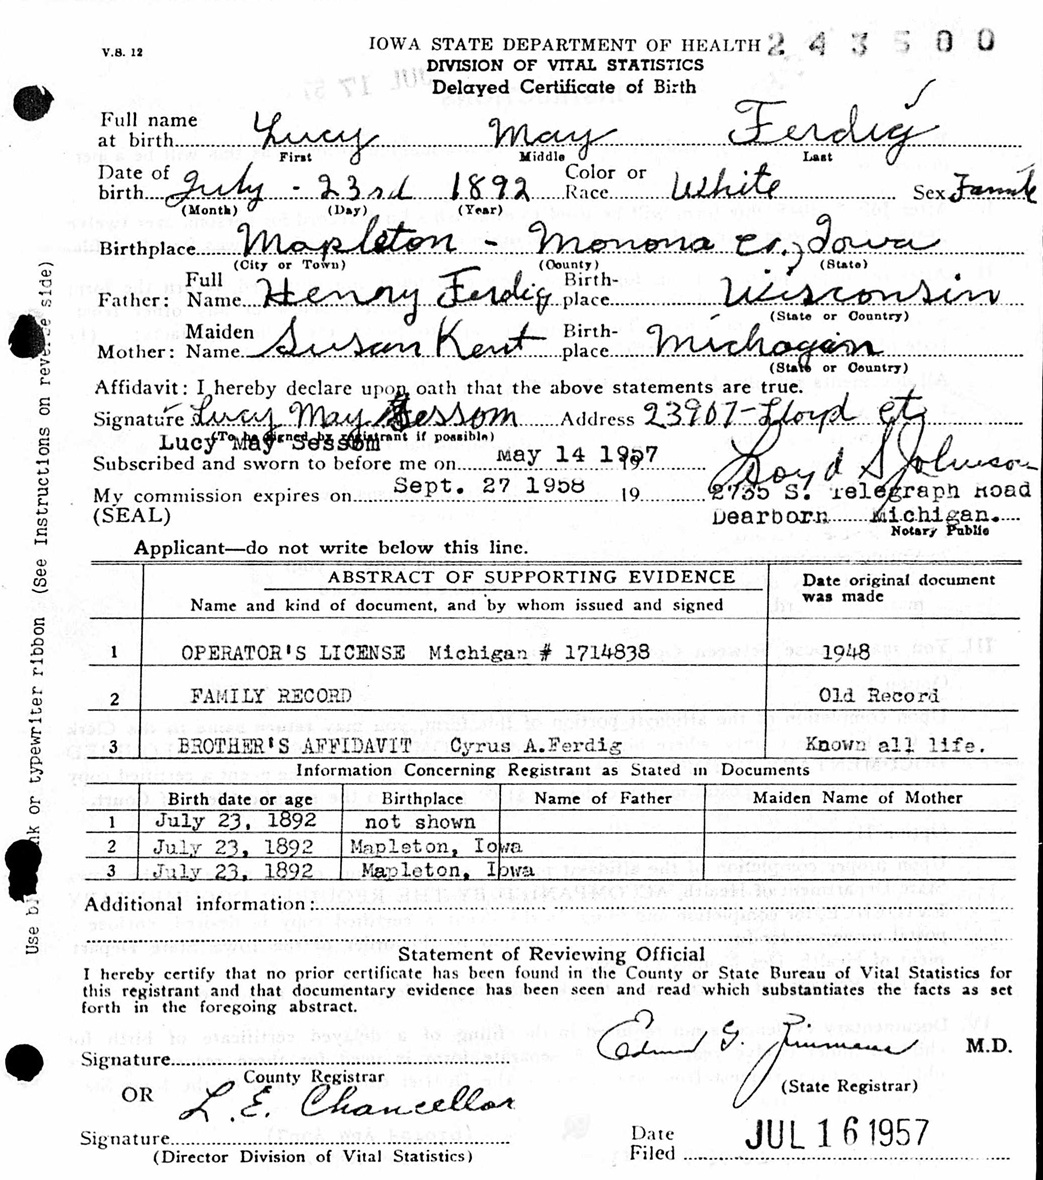 V.S. 12
IOWA STATE DEPARTMENT OF HEALTH 243500
DIVISION OF VITAL STATISTICS
Delayed Certificate of Birth
JUL 17 57
Full name
at birth Lucy May Ferdig
First Middle Last
Date of birth July - 23rd 1892 Color or Race White Sex Female
(Month) (Day) (Year)
Birthplace Mapleton - Monona Co., Iowa
(City or Town) (County) (State)
Father: Full Name Henry Ferdig Birthplace Wisconsin
(State or Country)
Mother: Maiden Name Susan Kent Birthplace Michagan
(State or Country)
Affidavit: I hereby declare upon oath that the above statements are true.
Signature Lucy May Sessom Address 23907-Lloyd Ct
(To be signed by registrant if possible)
Lucy May Sessom
Subscribed and sworn to before me on May 14 1957 19
Loyd S Johnson
My commission expires on Sept. 27 1958 19 2735 S. Telegraph Road
(SEAL) Dearborn Michigan.
Notary Public
Applicant—do not write below this line.
ABSTRACT OF SUPPORTING EVIDENCE Date original document was made
Name and kind of document, and by whom issued and signed
1 OPERATOR'S LICENSE Michigan # 1714838 1948
2 FAMILY RECORD Old Record
3 BROTHER'S AFFIDAVIT Cyrus A.Ferdig Known all life.
Information Concerning Registrant as Stated in Documents
Birth date or age Birthplace Name of Father Maiden Name of Mother
1 July 23, 1892 not shown
2 July 23, 1892 Mapleton, Iowa
3 July 23, 1892 Mapleton, Iowa
Additional information:
Statement of Reviewing Official
I hereby certify that no prior certificate has been found in the County or State Bureau of Vital Statistics for
this registrant and that documentary evidence has been seen and read which substantiates the facts as set
forth in the foregoing abstract.
Signature M.D.
County Registrar (State Registrar)
OR L. E. Chancellor
Signature Date Filed JUL 16 1957
(Director Division of Vital Statistics)
Use bl nk or typewriter ribbon (See Instructions on reverse side)